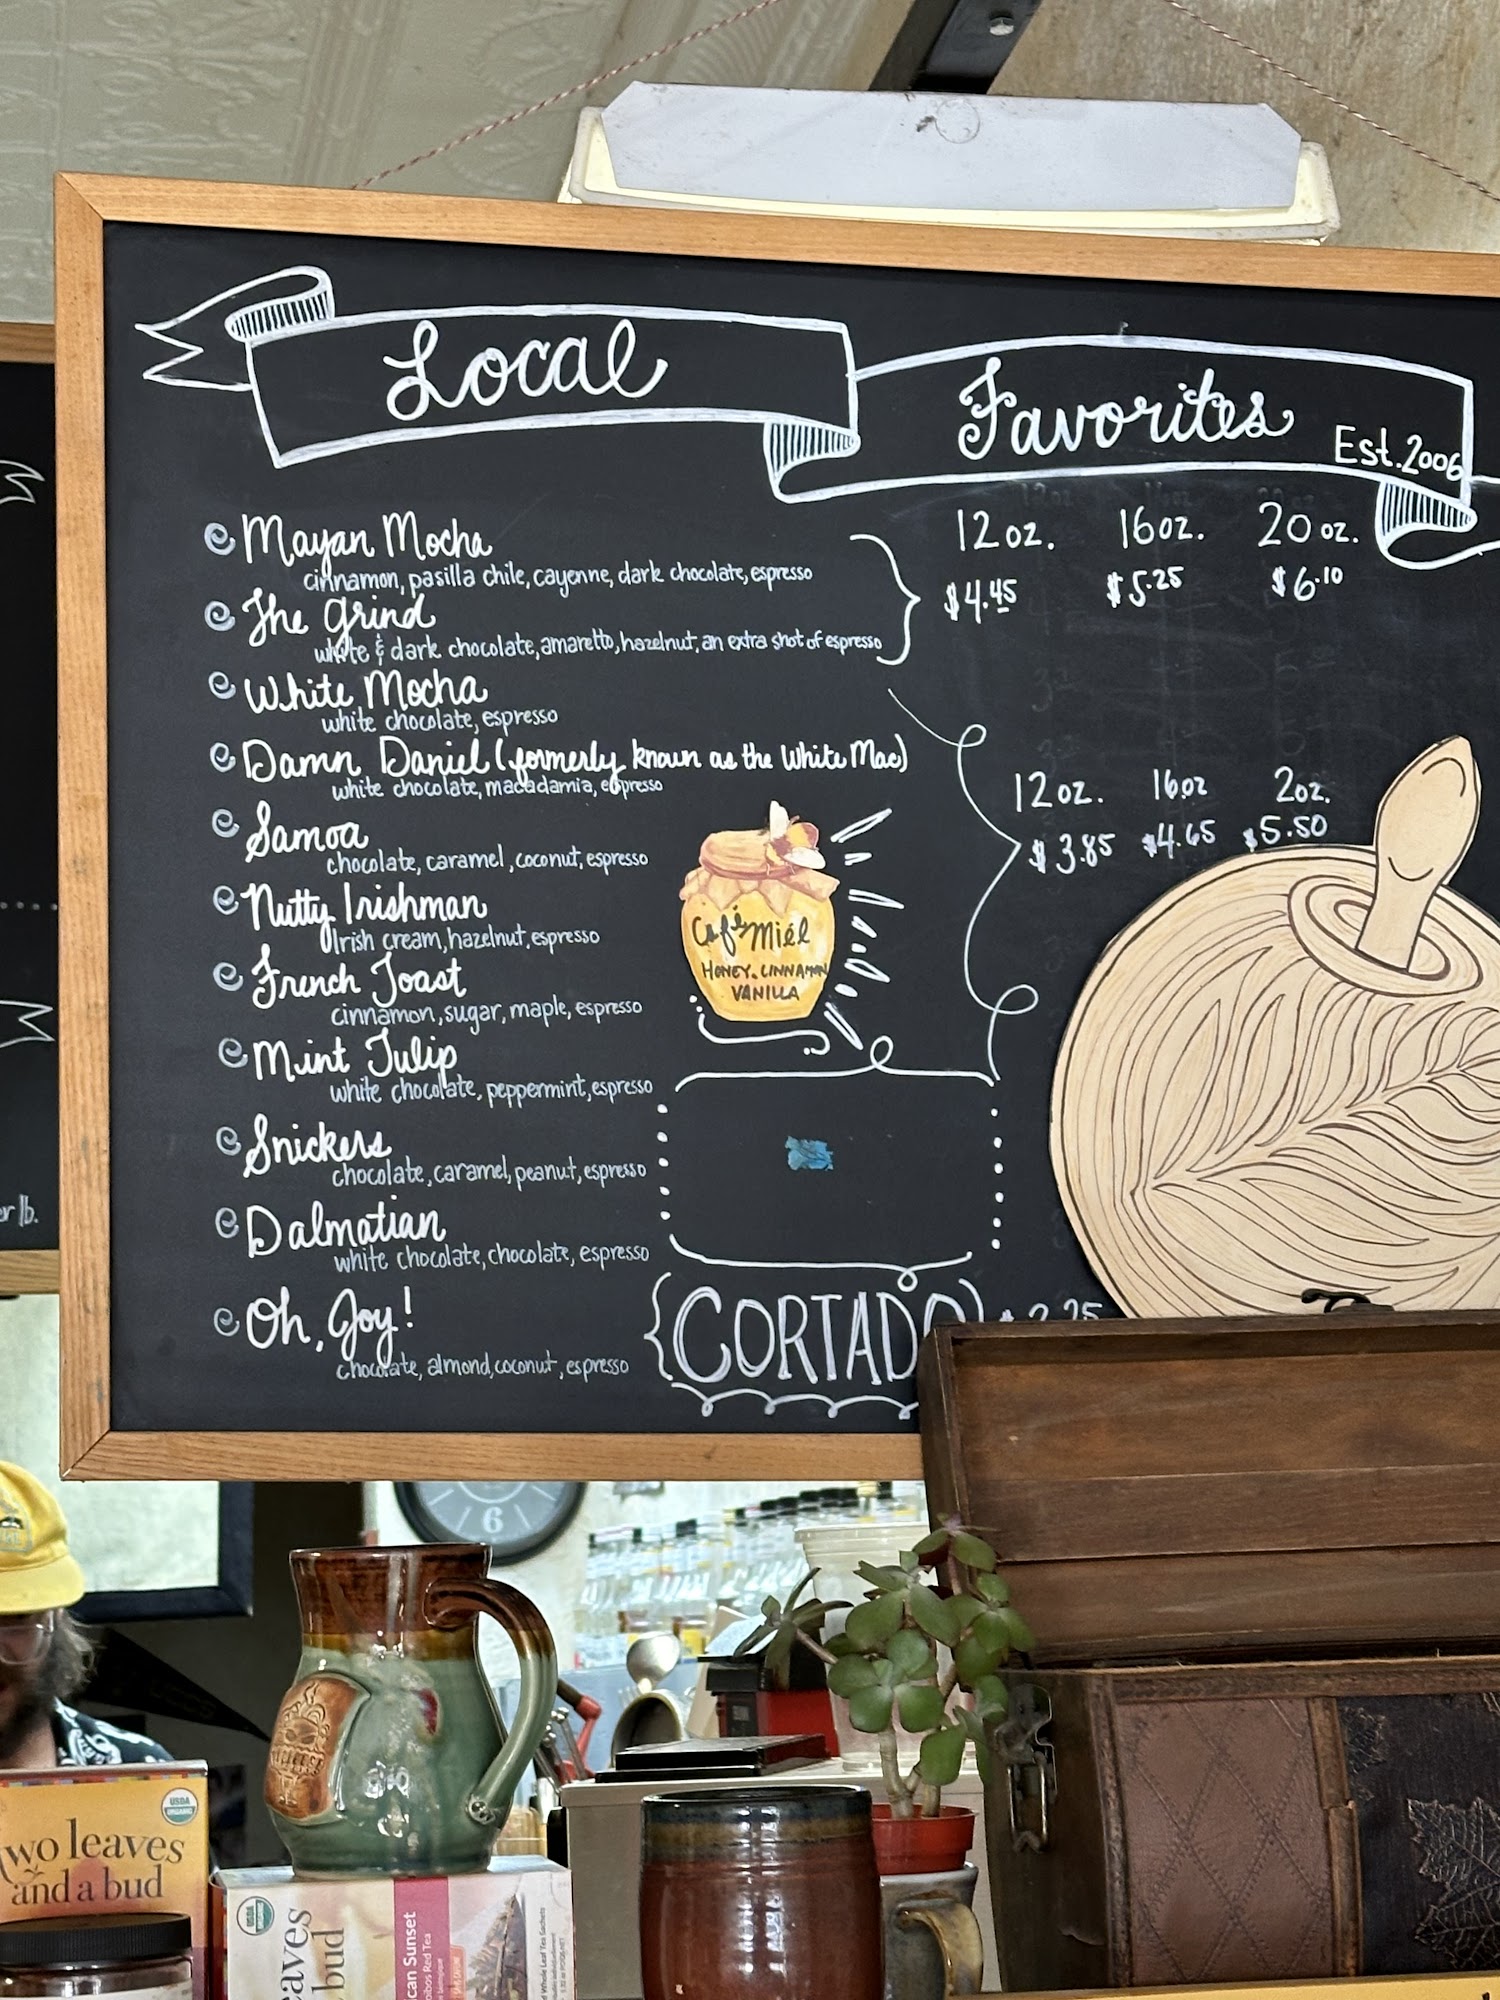 Local
Favorites
Est. 2006
Mayan Mocha
cinnamon, pasilla chile, cayenne, dark chocolate, espresso
The Grind
white & dark chocolate, amaretto, hazelnut, an extra shot of espresso
12 oz. 16 oz. 20 oz.
$4.45 $5.25 $6.10
White Mocha
white chocolate, espresso
Damn Daniel (formerly known as the White Mac)
white chocolate, macadamia, espresso
Samoa
chocolate, caramel, coconut, espresso
Nutty Irishman
Irish cream, hazelnut, espresso
French Toast
cinnamon, sugar, maple, espresso
Mint Julip
white chocolate, peppermint, espresso
Snickers
chocolate, caramel, peanut, espresso
Dalmatian
white chocolate, chocolate, espresso
Oh, Joy!
chocolate, almond, coconut, espresso
12 oz. 16 oz 2 oz.
$3.85 $4.65 $5.50
Café Miél
HONEY, CINNAMON
VANILLA
{CORTADO}
er lb.
6
USDA
ORGANIC
wo leaves
and a bud
USDA
ORGANIC
eaves
bud
can Sunset
ooibos Red Tea